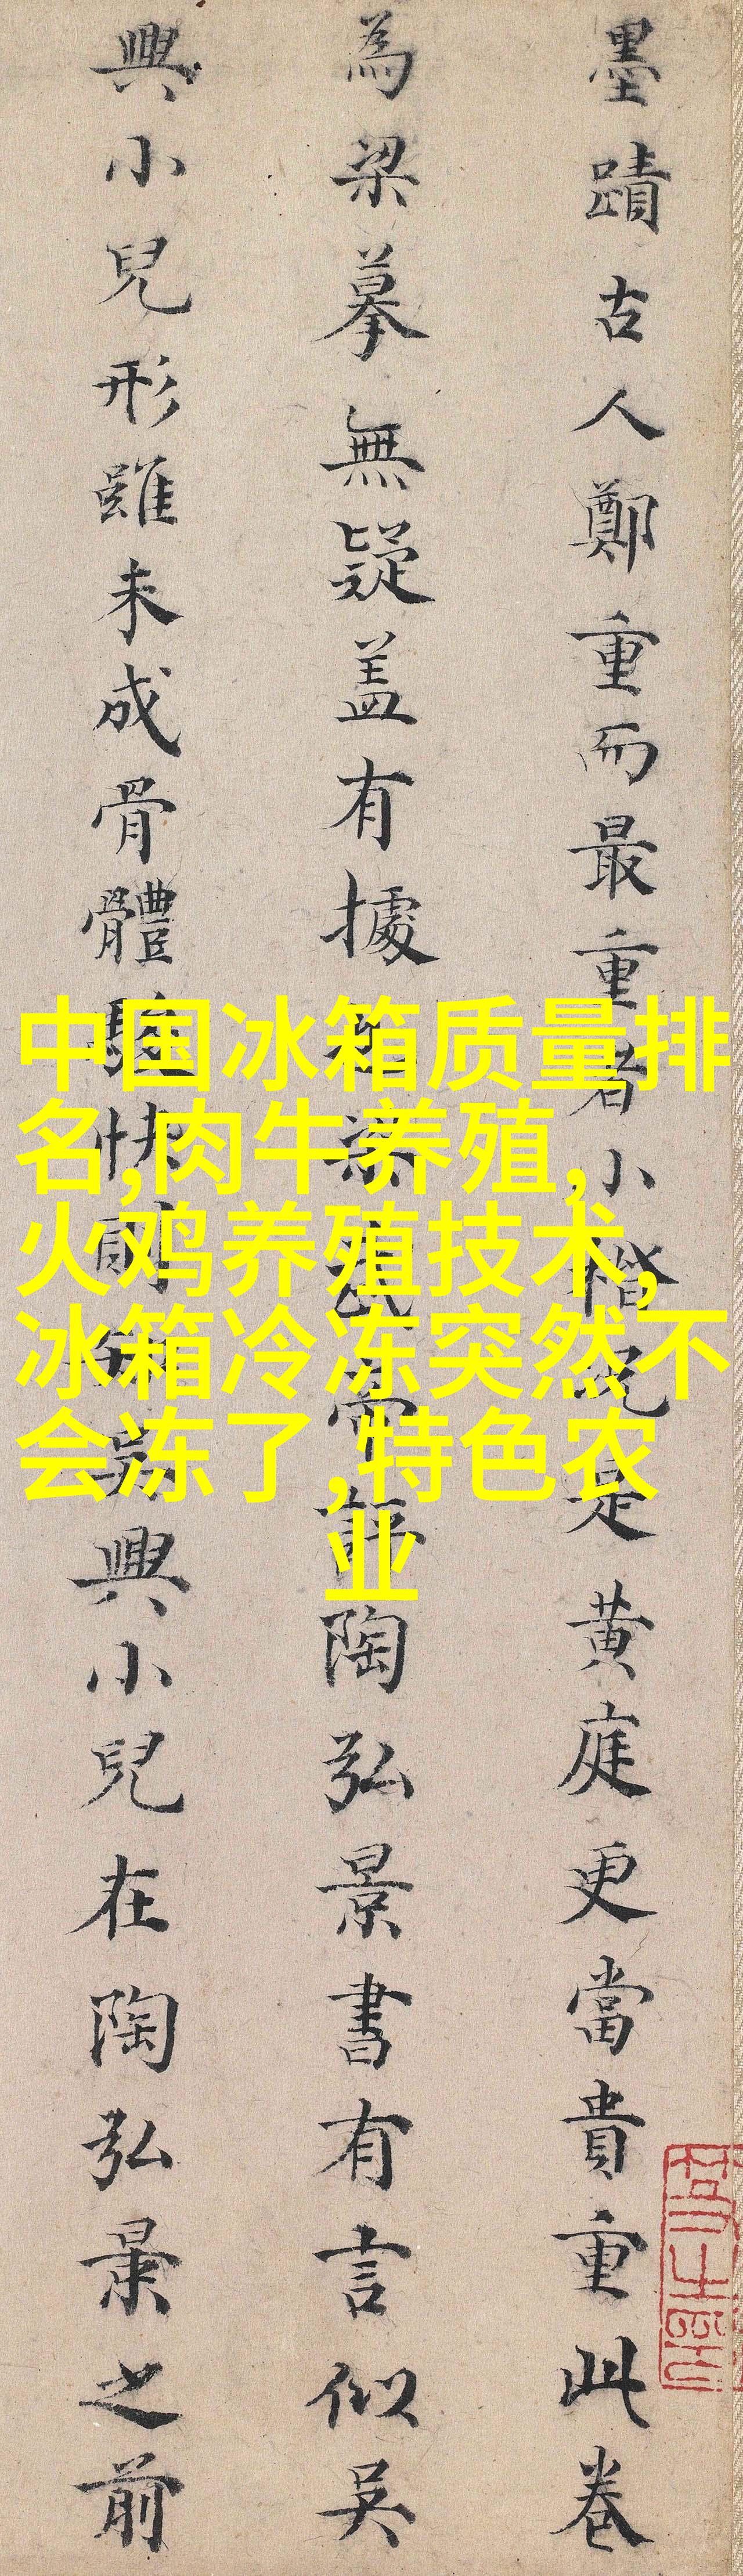 墨蹟古人鄭重而最重者小楷況是黃庭更當貴重此卷
為梁摹無疑蓋有據梁武帝評陶弘景書有言似吳
興小兒形雖未成骨體駿快則知吳興小兒在陶弘景之前
中国冰箱质量排
名,肉牛养殖,
火鸡养殖技术,
冰箱冷冻突然不
会冻了,特色农
业